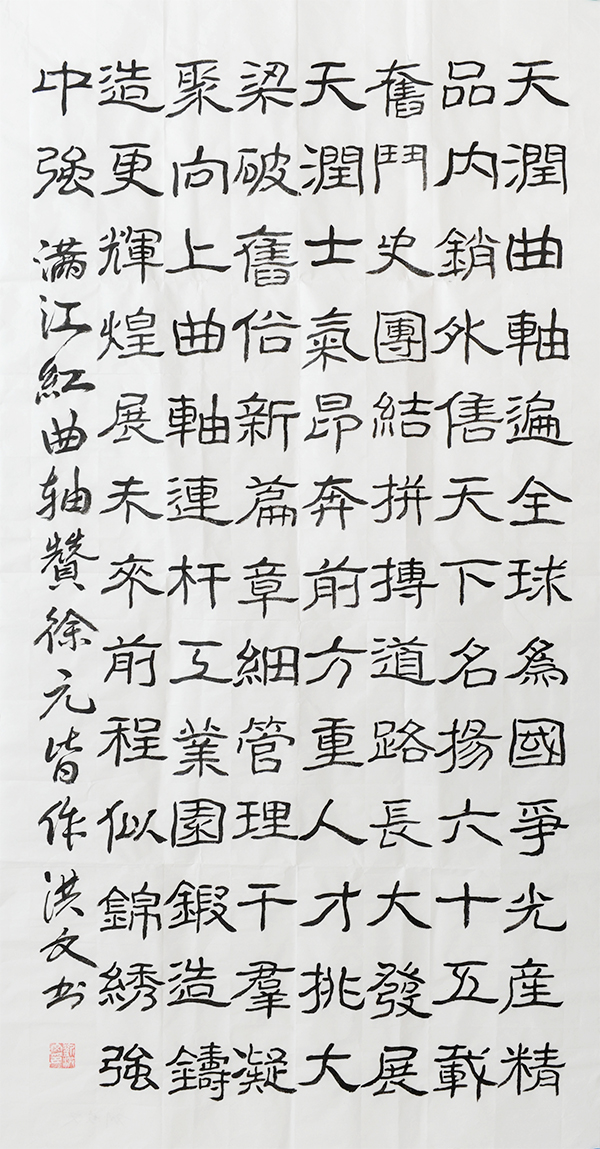 天潤曲軸遍全球為國爭光産精
品内銷外售天下名揚六十五載
奮鬥史團結拼搏道路長大發展
天潤士氣昂奔前方重人才挑大
梁破舊俗新篇章細管理干羣凝
聚向上曲軸連杆工業園鍛造鑄
造更輝煌展未來前程似錦綉強
中強
满江紅曲轴贊徐元皆作洪文书